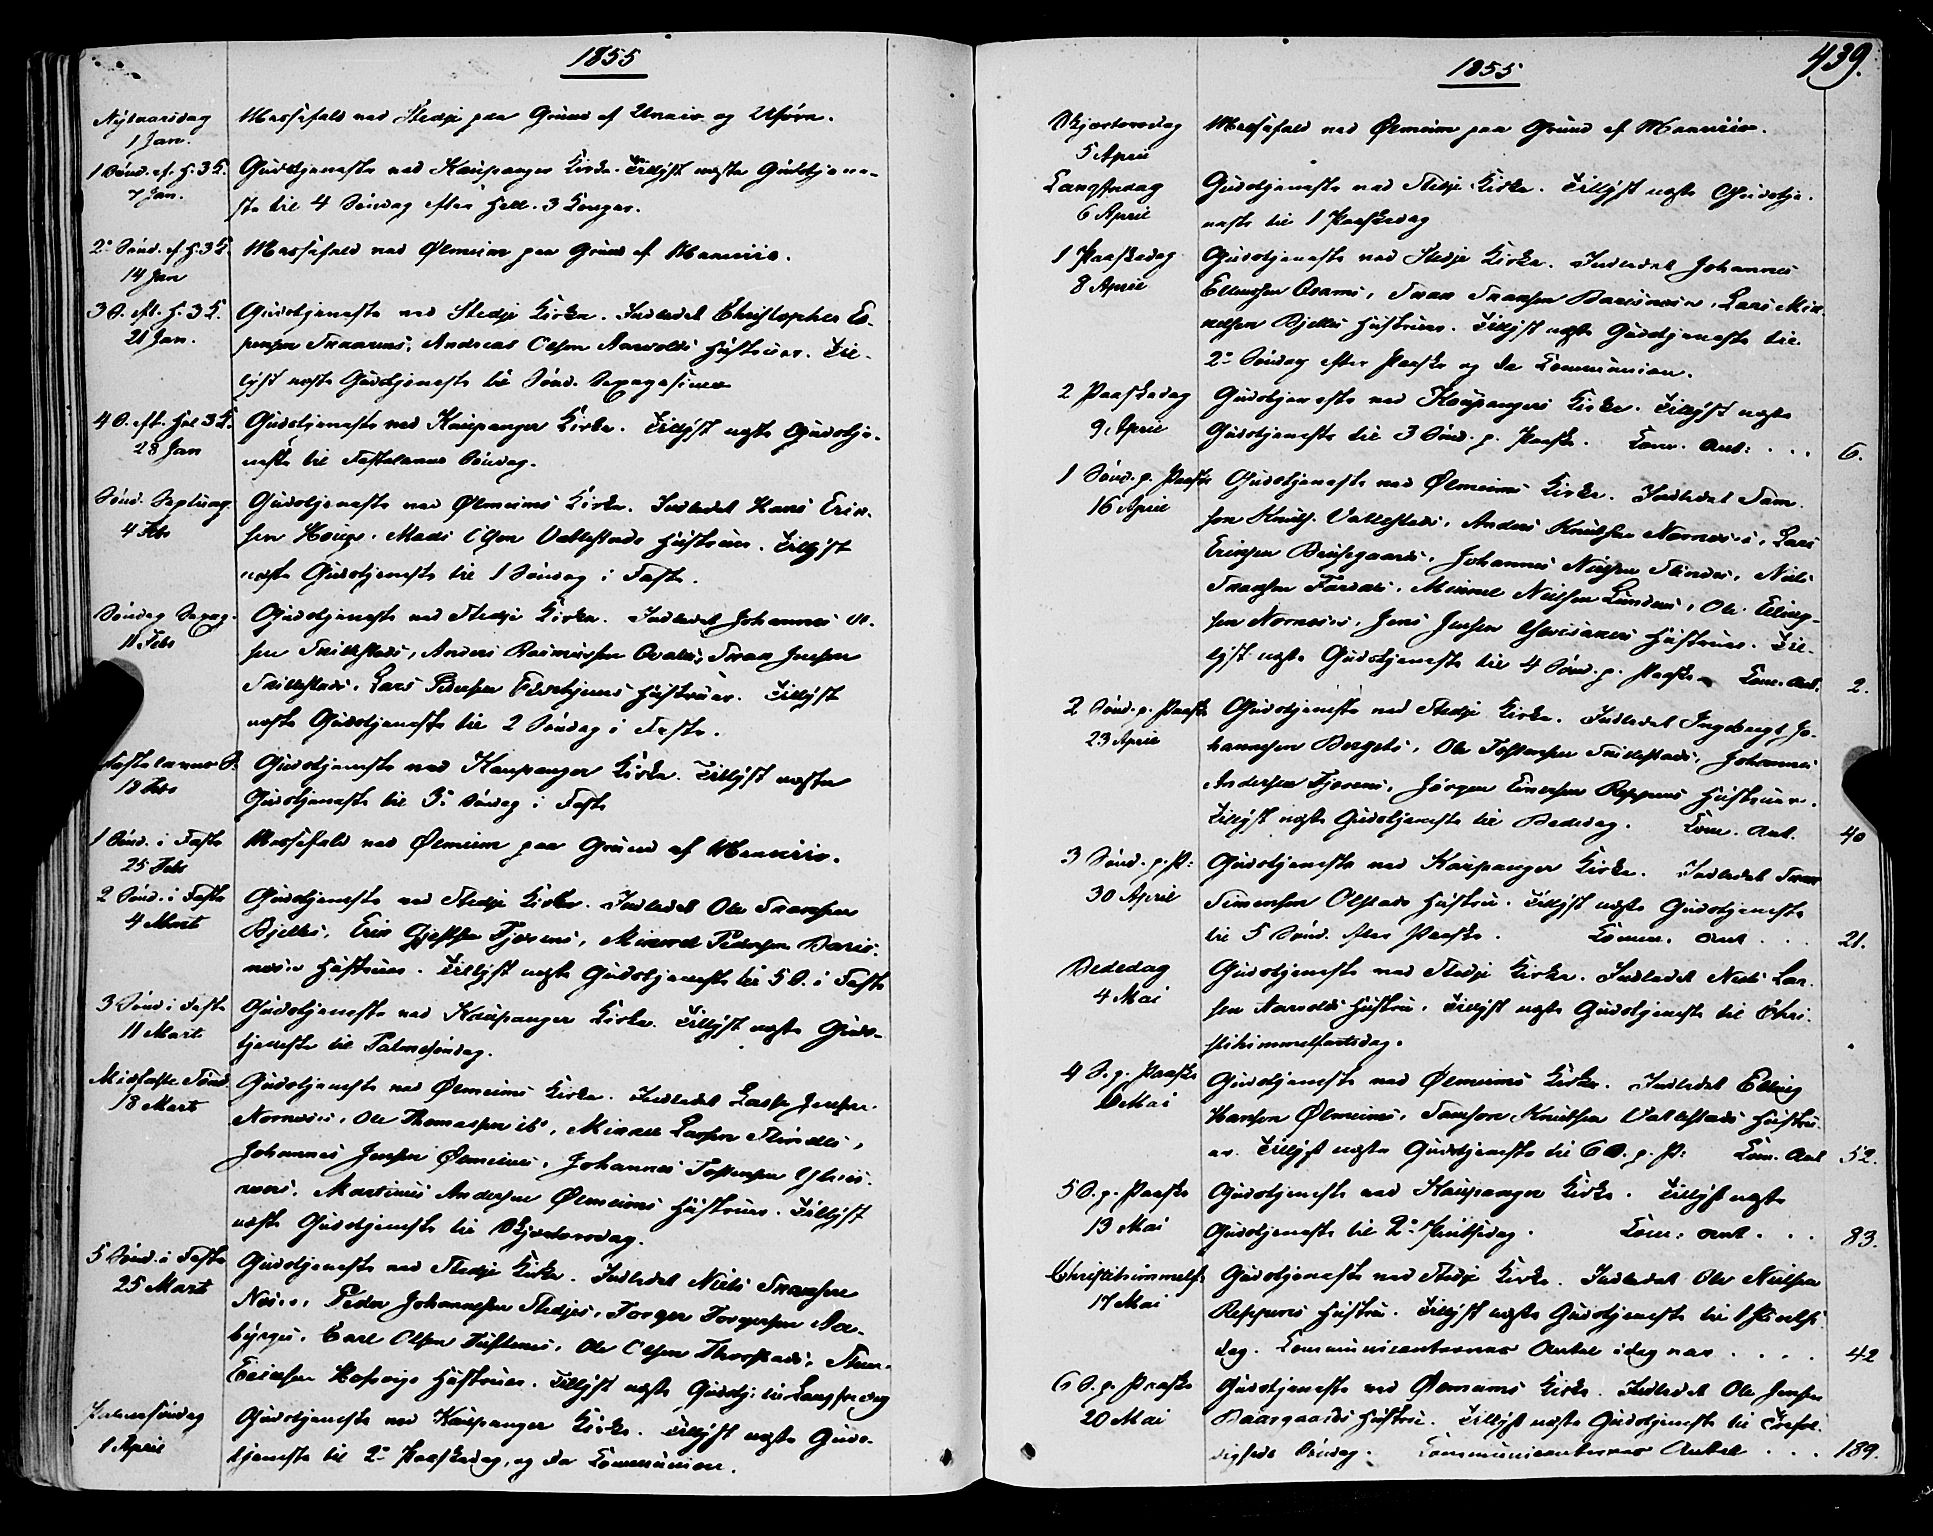 1855
Nytaarsdag
1 Jan.
Messefald ved Stedje paa Grund af Uveir og Uføre.
1 Sønd. ef. H. 3 K.
7 Jan.
Gudstjeneste ved Kaupanger Kirke. Tillyst næste Gudstjene-
ste til 4 Søndag efter Hell. 3 Konger.
2. Sønd. ef. H. 3 K.
14 Jan
Messefald ved Ølmeim paa Grund af
3 S. eft. H. 3 K.
21 Jan.
Gudstjeneste ved Stedje Kirke. Indledet Christopher Es-
pensen Andreas Olsen Aarvolds Hustruer. Til-
lyst næste Gudstjeneste til Sønd. Sexagesima
4 S. eft. Hel 3 K.
28 Jan
Gudstjeneste ved Kaupanger Kirke. Tillyst næste Gudstje-
neste til Fastelavns Søndag.
Sønd. Septuag.
4 Febr
Gudstjeneste ved Ølmeims Kirke. Indledet Hans Erik-
sen Hauge, Mads Olsen Vallestads Hustruer. Tillyst
næste Gudstjeneste til 1 Søndag i Faste.
Søndag Sexag.
11 Febr
Gudstjeneste ved Stedje Kirke. Indledet Johannes
sen Skillestads, Anders Rasmussen Qvalls, Iver Jensen
Skillestads, Lars Pedersen Hustruer. Tillyst
næste Gudstjeneste til 2 Søndag i Faste.
Fastelavns S.
18 Febr
Gudstjeneste ved Kaupanger Kirke. Tillyst næste
Gudstjeneste til 3. Søndag i Faste
1 Sønd. i Faste
25 Febr
Messefald ved Ølmeim paa Grund af
2 Sønd. i Faste
4 Marts
Gudstjeneste ved Stedje Kirke. Indledet Ole Iversen
Bjelles, Erik Gjestsen Fjærens, Mikkel Pedersen Baris-
næss Hustruer. Tillyst næste Gudstjeneste til 5 S. i Faste
3 Sønd i Faste
11 Marts
Gudstjeneste ved Kaupanger Kirke. Tillyst næste Guds-
tjeneste til Palmesøndag.
Midfaste Sønd.
18 Marts
Gudstjeneste ved Ølmeims Kirke. Indledet Lasse Jensen
Nornæss, Ole Thomassen ib., Mikkel Larsen Slindes,
Johannes Jensen Ølmeims, Johannes Tostensen Ylvis-
Martinus Andersen Ølmeims Hustruer. Tillyst
næste Gudstjeneste til Skjærtorsdag.
5 Sønd. i Faste
25 Marts
Gudstjeneste ved Stedje Kirke. Indledet Niels Iversen
Næss, Peder Johannesen Stedjes, Torger Torgersen Aa-
Carl Olsen Ole Olsen
Eriksen Hustruer. Tillyst næste Gudstj: til Langfredag
Palmesøndag
1 April
Gudstjeneste ved Kaupanger Kirke. Tillyst næste Guds-
tjeneste til 2. Paaskedag, og da Communion.
439.
1855
Skjærtorsdag
5 April
Messefald ved Ølmeim paa Grund af
Langfredag
6 April
Gudstjeneste ved Stedje Kirke. Tillyst næste Gudstje-
neste til 1 Paaskedag
1 Paaskedag
8 April
Gudstjeneste ved Stedje Kirke. Indledet Johannes
Ellensen Qvams, Iver Iversen Barisnæss, Lars Mik-
kelsen Bjelles Hustruer. Tillyst næste Gudstjeneste til
2. Søndag efter Paaske og da Communion.
2 Paaskedag
9 April
Gudstjeneste ved Kaupangers Kirke. Tillyst næste
Gudstjeneste til 3 Sønd. p. Paaske. Com. Ant: . . . 6.
1 Sønd. p. Paaske
16 April
Gudstjeneste ved Ølmeims Kirke. Indledet Sam-
son Knuts. Vallestads, Anders Knudsen Nornæss, Lars
Eriksen Johannes Nielsen Slindes, Niels
Iversen Mikkel Nielsen Lundens, Ole Elling-
sen Nornæss, Jens Jensen Ylvisakers Hustruer. Til-
lyst næste Gudstjeneste til 4 Sønd. p. Paaske Com. Ant. 2.
2 Sønd. p. Paaske
23 April
Gudstjeneste ved Stedje Kirke. Indledet Ingebrigt Jo-
hannesen Bergets, Ole Tostensen Skillestads, Johannes
Andersen Fjærens, Jørgen Einersen Reppens Hustruer.
Tillyst næste Gudstjeneste til Bededag. Com. Ant. 40
3 Sønd. p. P:
30 April
Gudstjeneste ved Kaupanger Kirke. Indledet Iver
Simensen Olstads Hustru. Tillyst næste Gudstjeneste
til 5 Sønd. efter Paaske. Comm. Ant . . . 21.
Bededag
4 Mai
Gudstjeneste ved Stedje Kirke. Indledet Niels Lar-
sen Aarvolds Hustru. Tillyst næste Gudstjeneste til Chri-
stihimmelfartsdag.
4 S. p. Paaske
6 Mai
Gudstjeneste ved Ølmeims Kirke. Indledet Elling
Hansen Ølmeims, Samson Knudsen Vallestads Hustru-
er. Tillyst næste Gudstjeneste til 6 S. p. P: Com. Ant 52.
5 S. p. Paaske
13 Mai
Gudstjeneste ved Kaupanger Kirke. Tillyst næste
Gudstjeneste til 2. Pintsedag. Com: Ant. . . . 83.
Christihimmelf.
17 Mai
Gudstjeneste ved Stedje Kirke. Indledet Ole Nielsen
Reppens Hustru. Tillyst næste Gudstjeneste til 1 Pintse-
dag. Communicanternes Antal idag var . . . . 42
6 S. p. Paaske
20 Mai
Gudstjeneste ved Ølmeims Kirke. Indledet Ole Jensen
Hustru. Tillyst næste Gudstjeneste til Trefol-
digheds Søndag. Communicanternes Antal . . . 189.